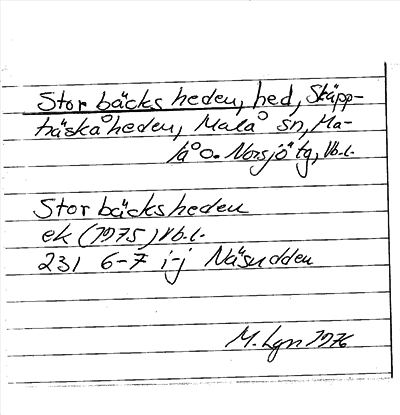 Storbäcksheden, hed, Skäpp-
träskåheden, Malå sn, Ma-
lå o. Norsjö tg, Vb.l.
Storbäcksheden
ek (1975) Vb.l.
231 6-7 i-j Näsudden
M. Lgn 1976